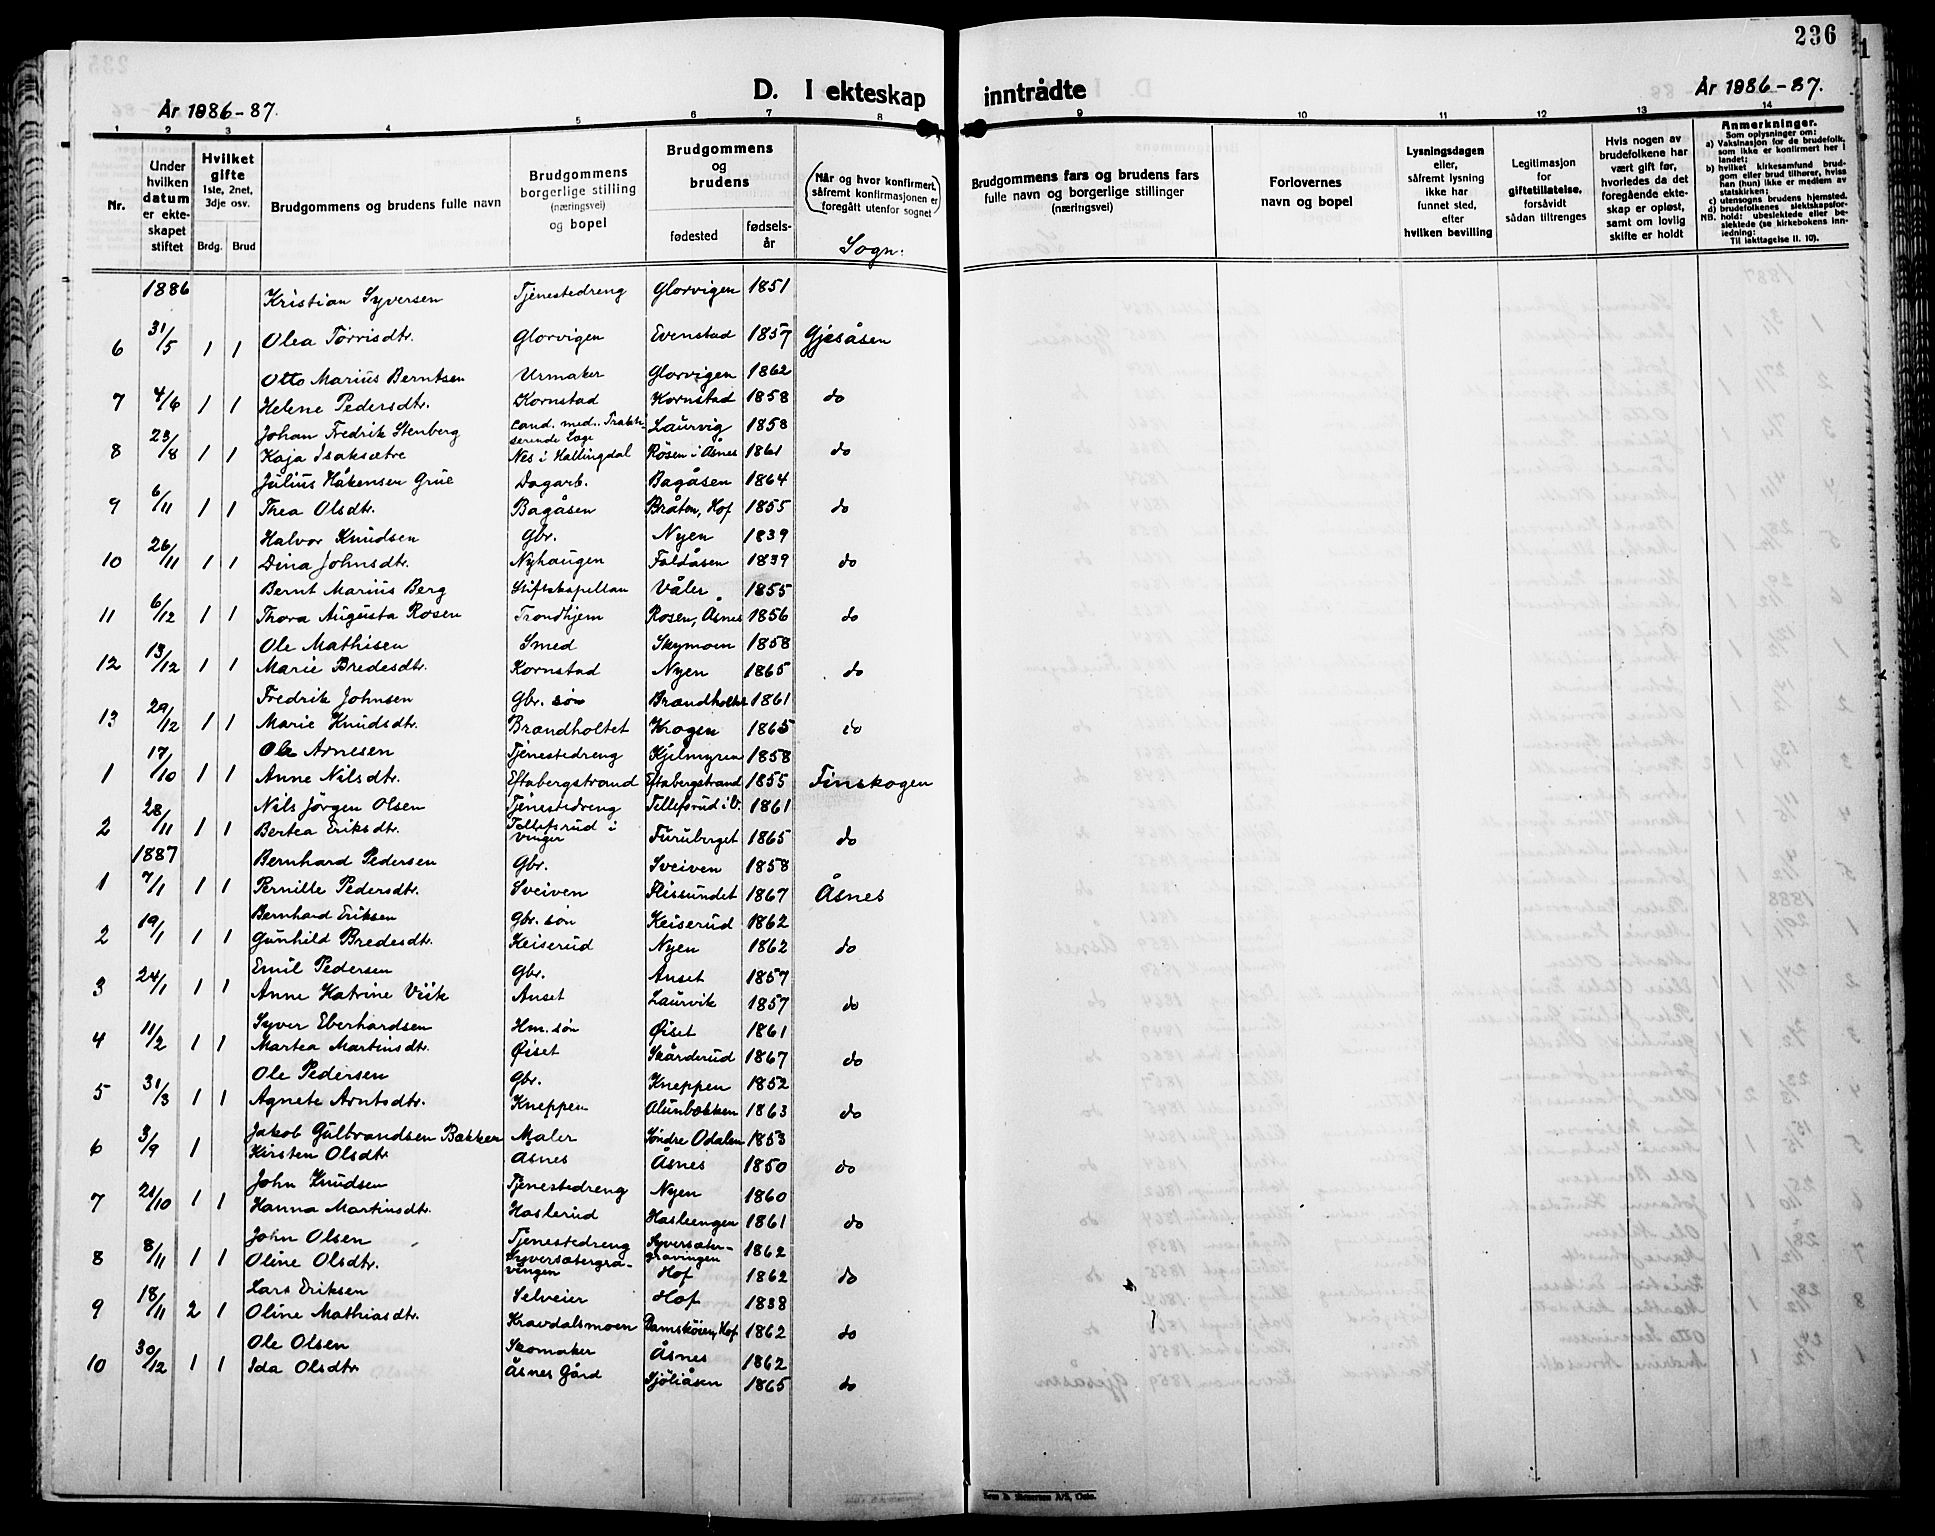 236
År 1886-87.
D. I ekteskap inntrådte
År 1886-87.
1 2 3 4 5 6 7 8 9 10 11 12 13 14
Nr.
Under hvilken datum er ekteskapet stiftet
Hvilket gifte
1ste, 2net, 3dje osv.
Brdg. Brud
Brudgommens og brudens fulle navn
Brudgommens borgerlige stilling (næringsvei) og bopel
Brudgommens og brudens
fødested
fødselsår
(Når og hvor konfirmert, såfremt konfirmasjonen er foregått utenfor sognet)
Sogn:
Brudgommens fars og brudens fars fulle navn og borgerlige stillinger (næringsvei)
Forlovernes navn og bopel
Lysningsdagen eller, såfremt lysning ikke har funnet sted, efter hvilken bevilling
Legitimasjon for giftetillatelse, forsåvidt sådan tiltrenges
Hvis nogen av brudefolkene har vært gift før, hvorledes da det foregående ekteskap er opløst, samt om lovlig skifte er holdt
Anmerkninger.
Som oplysninger om:
a) Vaksinasjon for de brudefolk, som ikke er konfirmert her i landet;
b) hvilket kirkesamfund brudgom eller brud tilhører, hviss han (hun) ikke er medlem av statskirken;
c) utensogns brudens hjemsted.
d) brudefolkenes slektskapsforhold: ubeslektede eller beslektede (se kirkebokens innledning:
NB.
Til iakttagelse II. 10).
1886 Kristian Syversen Tjenestedreng Glorvigen 1851
6 31/5 1 1 Olea Torrisdtr. Glorvigen Evenstad 1857 Gjesåsen
Otto Marius Berntsen Urmaker Glorvigen 1862
7 4/6 1 1 Helene Pedersdtr. Kornstad Kornstad 1858 do
Johan Fredrik Stenberg Cand. med.. Prakti- Laurvig 1858
serende Læge
8 23/8 1 1 Kaja Isaksætre Nes i Hallingdal Rosen i Åsnes 1861 do
Julius Håkensen Grue Dagarb. Bagåsen 1864
9 6/11 1 1 Thea Olsdtr. Bagåsen Bråten, Hof 1855 do
Halvor Knudsen Gbr. Nyen 1839
10 26/11 1 1 Dina Johnsdtr. Nyhaugen Faldåsen 1839 do
Bernt Marius Berg Stiftskapellan Våler 1855
11 6/12 1 1 Thora Augusta Rosen Trondhjem Rosen, Åsnes 1856 do
Ole Mathisen Smed Skymoen 1858
12 13/12 1 1 Marie Bredesdtr. Kornstad Nyen 1865 do
Fredrik Johnsen Gbr. søn Brandholtet 1861
13 29/12 1 1 Marie Knudsdtr. Brandholtet Krogen 1865 do
Ole Arnesen Tjenestedreng Kjelmyren 1858
1 17/10 1 1 Anne Nilsdtr. Eftabergstrand Eftabergstrand 1855 Finskogen
Nils Jörgen Olsen Tjenestedreng Tellefsrud i V. 1861
2 28/11 1 1 Bertea Eriksdtr. Tellefsrud i Vinger Furuberget 1865 do
1887 Bernhard Pedersen Gbr. Sveiven 1858
1 7/1 1 1 Pernille Pedersdtr. Sveiven Flissundet 1867 Åsnes
Bernhard Eriksen Gbr. søn Keiserud 1862
2 19/1 1 1 Gunhild Bredesdtr. Keiserud Nyen 1862 do
Emil Pedersen Gbr. Anset 1857
3 24/1 1 1 Anne Katrine Viik Anset Laurvik 1857 do
Syver Eberhardsen Hm. søn Øiset 1861
4 11/2 1 1 Martea Martinsdtr. Øiset Skårderud 1867 do
Ole Pedersen Gbr. Kneppen 1852
5 31/3 1 1 Agnete Arntsdtr. Kneppen Alunbækken 1863 do
Jakob Gulbrandsen Bækker Maler Søndre Odalen 1853
6 3/9 1 Kirsten Olsdtr. Åsnes Åsnes 1850 do
John Knudsen Tjenestedreng Nyen 1860
7 21/10 1 1 Hanna Martinsdtr. Haslerud Hasleengen 1861 do
John Olsen Tjenestedreng Syversæter-gravingen 1862
8 8/11 1 1 Oline Olsdtr. Syversætergra-vingen Hof 1862 do
Lars Eriksen Selveier Hof 1838
9 18/11 2 1 Oline Mathiasdtr. Kravdalsmoen Damsköien, Hof 1862 do
Ole Olsen Skomaker Åsnes 1862
10 30/12 1 1 Ida Olsdtr. Åsnes Gård Sjöliåsen 1865 do